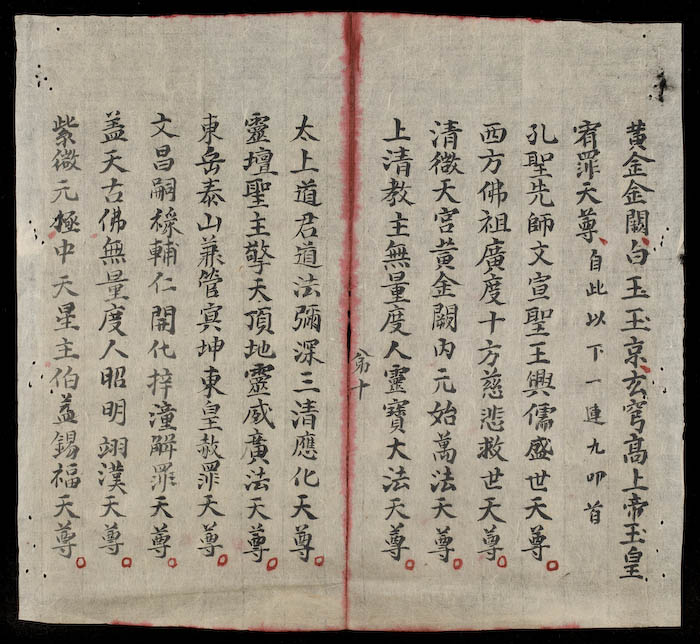 黃金金闕白玉玉京玄穹高上帝玉皇
宥罪天尊 自此以下一連九叩首
孔聖先師文宣聖王興儒盛世天尊
西方佛祖廣度十方慈悲救世天尊
清微天宮黃金闕內元始萬法天尊
上清教主無量度人靈寶大法天尊
第十
太上道君道法彌深三清應化天尊
靈壇聖主擎天頂地靈威廣法天尊
東岳泰山兼管寞坤東皇赦罪天尊
文昌嗣祿輔仁開化梓潼解罪天尊
盖天古佛無量度人昭明翊漢天尊
紫微元極中天星主伯益錫福天尊